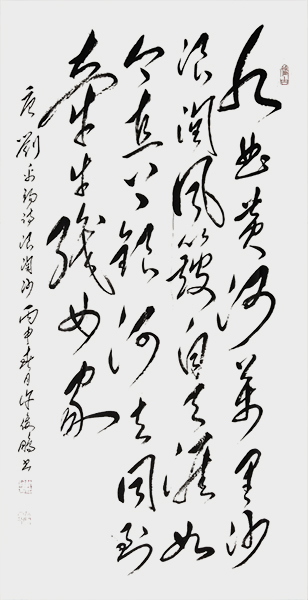 九曲黄河萬里沙
浪淘風簸自天涯如
今直上銀河去同到
牽牛織女家
唐劉禹錫詩浪淘沙丙申春月